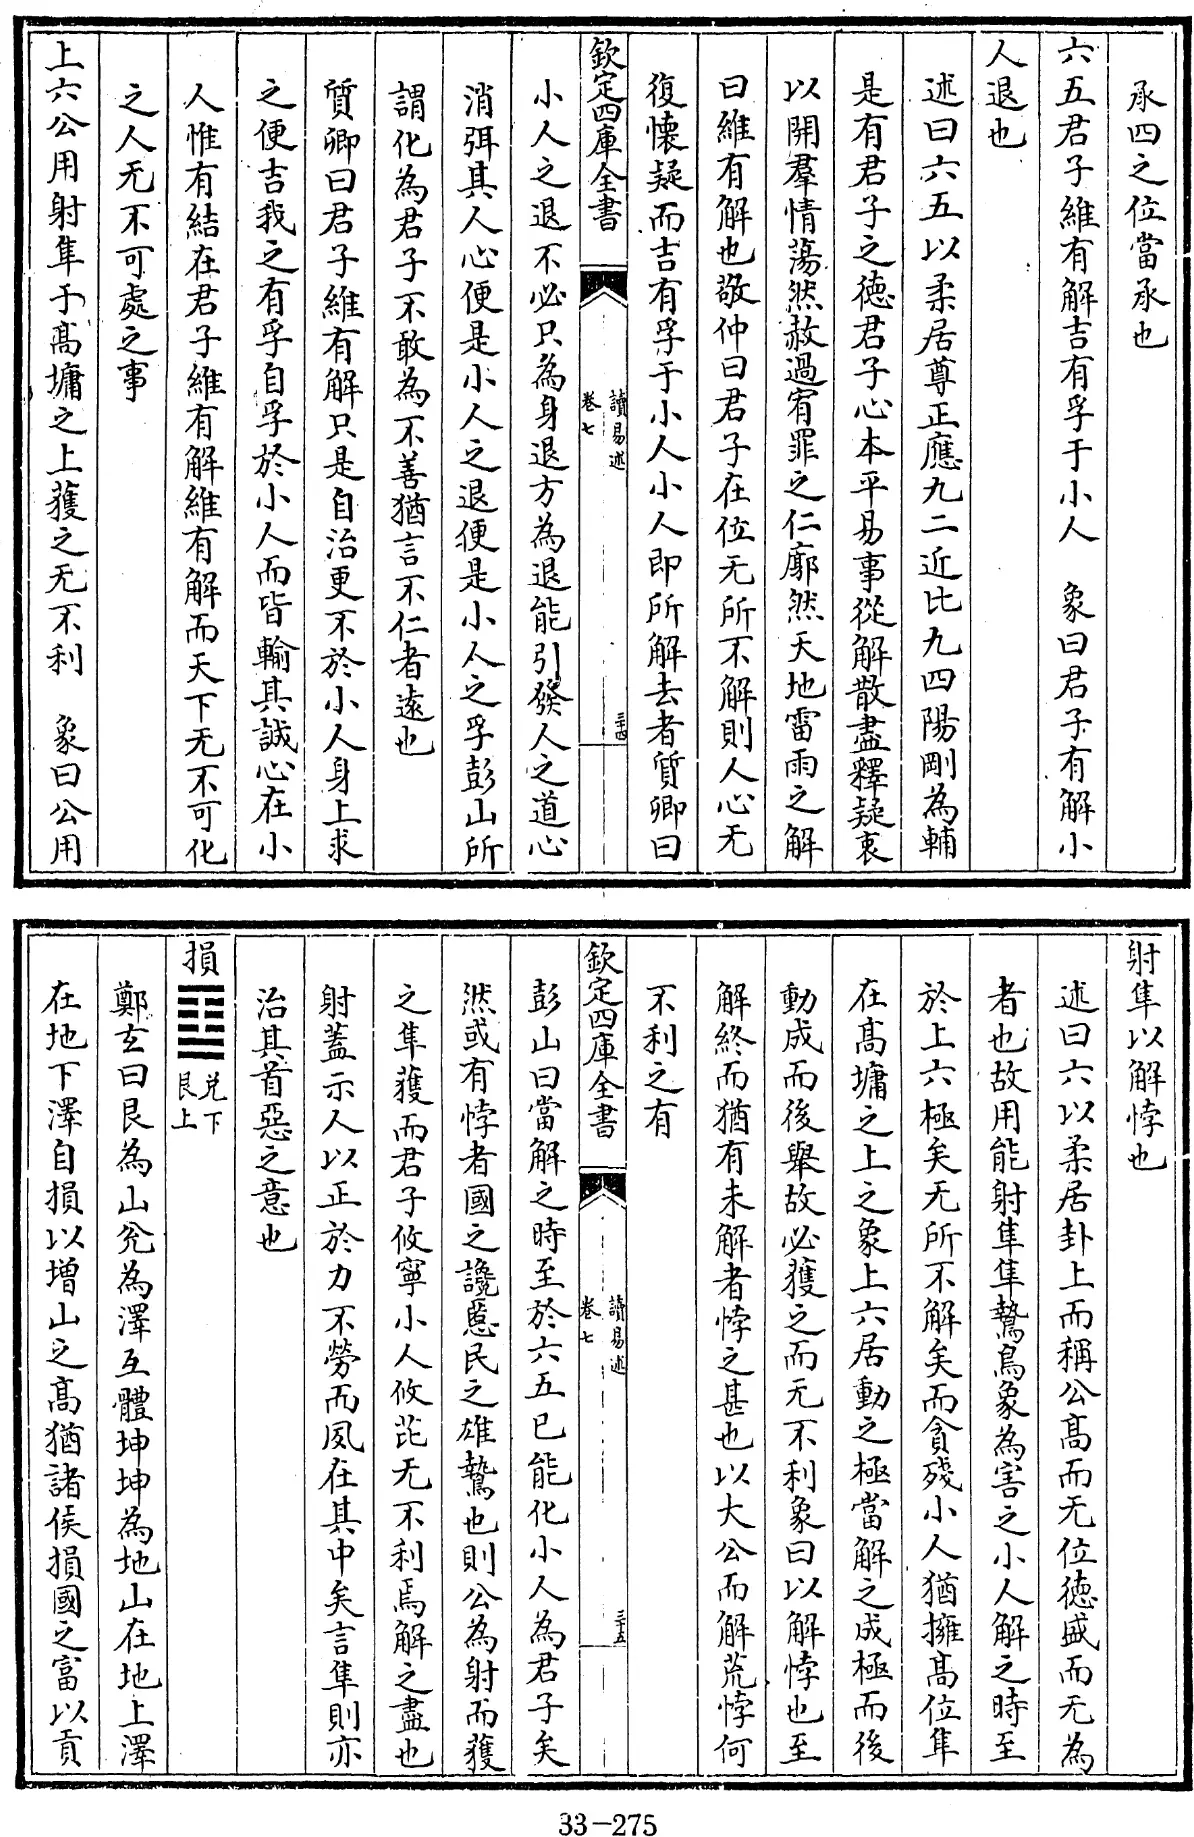 承四之位當承也
六五君子維有解吉有孚于小人　象曰君子有解小
人退也
述曰六五以柔居尊正應九二近比九四陽剛為輔
是有君子之德君子心本平易事從解散盡釋疑衷
以開羣情蕩然赦過宥罪之仁廓然天地雷雨之解
曰維有解也敬仲曰君子在位无所不解則人心无
復懷疑而吉有孚于小人小人即所解去者質卿曰
欽定四庫全書
讀易述
卷七
三十四
小人之退不必只為身退方為退能引發人之道心
消弭其人心便是小人之退便是小人之孚彭山所
謂化為君子不敢為不善猶言不仁者遠也
質卿曰君子維有解只是自治更不於小人身上求
之便吉我之有孚自孚於小人而皆輸其誠心在小
人惟有結在君子維有解維有解而天下无不可化
之人无不可處之事
上六公用射隼于髙墉之上獲之无不利　象曰公用
射隼以解悖也
述曰六以柔居卦上而稱公髙而无位德盛而无為
者也故用能射隼隼鷙鳥象為害之小人解之時至
於上六極矣无所不解矣而貪殘小人猶擁髙位隼
在髙墉之上之象上六居動之極當解之成極而後
動成而後舉故必獲之而无不利象曰以解悖也至
解終而猶有未解者悖之甚也以大公而解荒悖何
不利之有
欽定四庫全書
讀易述
卷七
三十五
彭山曰當解之時至於六五已能化小人為君子矣
然或有悖者國之讒慝民之雄鷙也則公為射而獲
之隼獲而君子攸寧小人攸芘无不利焉解之盡也
射蓋示人以正於力不勞而夙在其中矣言隼則亦
治其首惡之意也
損䷨兌下艮上
鄭玄曰艮為山兌為澤互體坤坤為地山在地上澤
在地下澤自損以增山之髙猶諸侯損國之富以貢
33-275